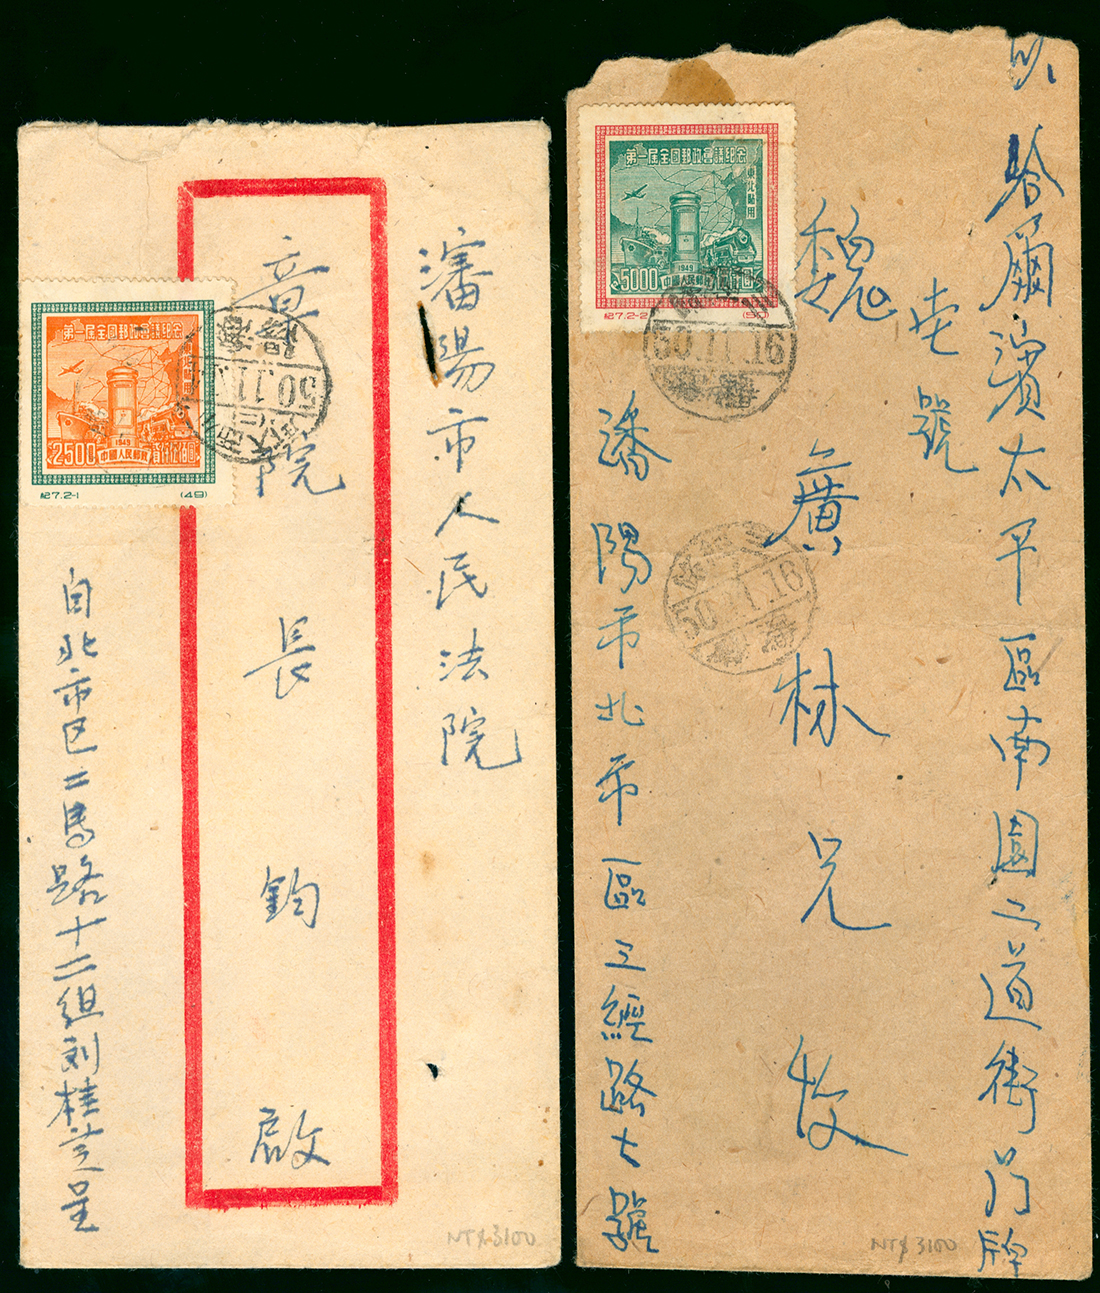 瀋陽市人民法院
章院長鈞啟
自北市区二馬路十二組刘桂芝呈
第一届全國郵政會議紀念
1949
2500
中國人民郵政
貳仟伍佰圓
紀7.2-1
(49)
瀋陽
50.11.
NT$3100
哈爾濱太平區南園二道街門牌
壱號
魏廣林兄收
瀋陽市北市區三經路七號
第一届全國郵政會議紀念
東北貼用
1949
5000
中國人民郵政
紀7.2-2
(50)
50.11.16
瀋陽
50.11.16
NT$3100